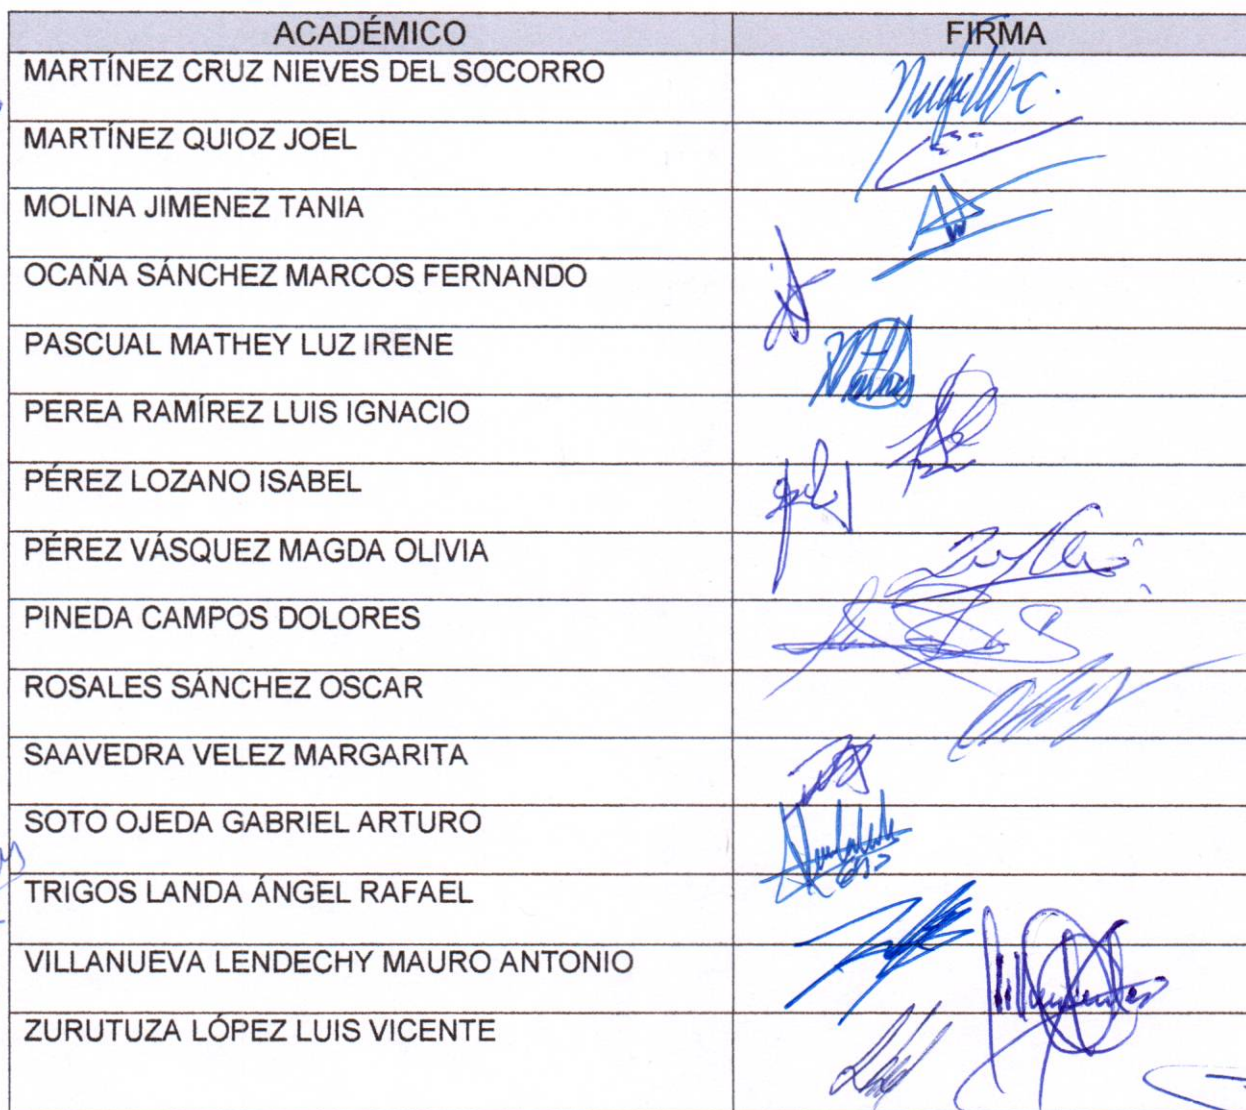 ACADÉMICO FIRMA
MARTÍNEZ CRUZ NIEVES DEL SOCORRO
MARTÍNEZ QUIOZ JOEL
MOLINA JIMENEZ TANIA
OCAÑA SÁNCHEZ MARCOS FERNANDO
PASCUAL MATHEY LUZ IRENE
PEREA RAMÍREZ LUIS IGNACIO
PÉREZ LOZANO ISABEL
PÉREZ VÁSQUEZ MAGDA OLIVIA
PINEDA CAMPOS DOLORES
ROSALES SÁNCHEZ OSCAR
SAAVEDRA VELEZ MARGARITA
SOTO OJEDA GABRIEL ARTURO
TRIGOS LANDA ÁNGEL RAFAEL
VILLANUEVA LENDECHY MAURO ANTONIO
ZURUTUZA LÓPEZ LUIS VICENTE